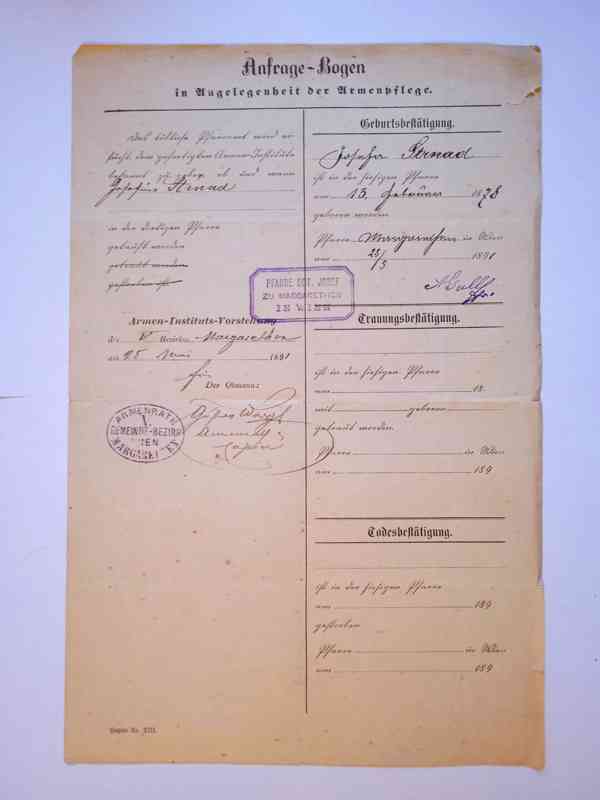 Anfrage-Bogen
in Angelegenheit der Armenpflege.
Das löbliche Pfarramt wird er-
sucht, dem gefertigten Armen-Institute
bekannt zu geben, ob und wann
Josefine
in der dortigen Pfarre
getauft worden
getraut worden
gestorben ist.
Armen-Instituts-Vorstehung
des V Bezirkes Margarethen
am 25 1891
für
Der Obmann:
ARMENRATH
GEMEINDE-BEZIRK
WIEN
MARGARETEN
Bogen Nr. XIII.
Geburtsbestätigung.
Josefa
ist in der hiesigen Pfarre
am 13. Februar 1878
geboren worden
Pfarre Margarethen in Wien
am 28/5 1891
PFARRE SCT. JOSEF
ZU MARGARETHEN
IN WIEN
Trauungsbestätigung.
ist in der hiesigen Pfarre
am 18
mit geborene
getraut worden.
Pfarre in Wien
am 189
Todesbestätigung.
ist in der hiesigen Pfarre
am 189
gestorben
Pfarre in Wien
am 189